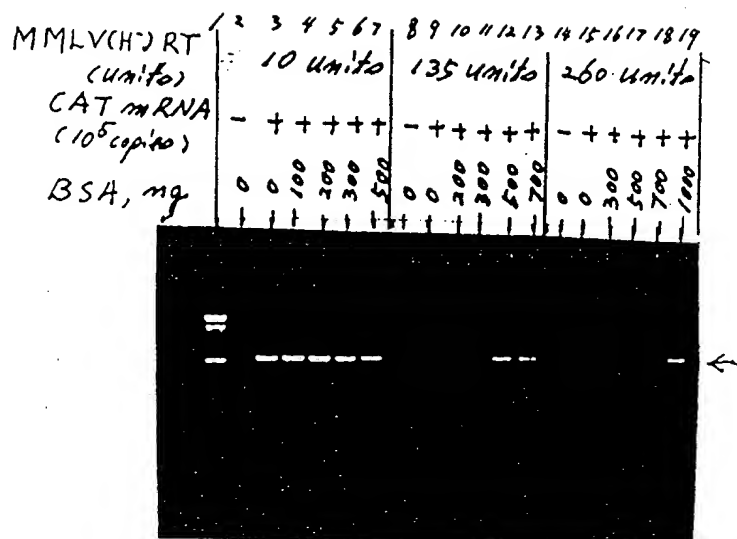 1 2 3 4 5 6 7 8 9 10 11 12 13 14 15 16 17 18 19
MMLV(H-) RT
(units) 10 units 135 units 260 units
CAT mRNA - + + + + + - + + + + + - + + + + +
(10^5 copies)
BSA, ng 0 0 100 200 300 500 0 0 200 300 500 700 0 0 300 500 700 1000